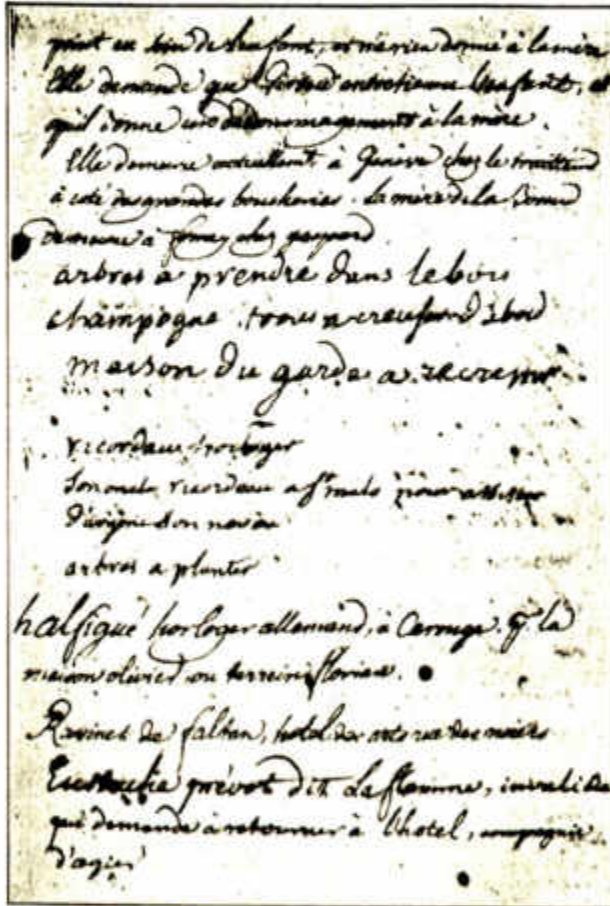 point eu soin de l'enfant, et n'a rien donné à la mère
Elle demande que entretienne l'enfant, et
qu'il donne un dédommagement à la mère.
Elle demeure actuellemt à Genève chez le traiteur
à coté des grandes boucheries. la mère de la
demeure à chez gaspard
arbres a prendre dans le bois
champagne.
maison du garde a
ricordeau horloger
Son oncle ricordeau a st malo pour
son neveu
arbres a planter
halfigué horloger allemand, à Carouge. la
maison olivier ou terrein florian.
Ravinet de faltan, hotel des arts rue des
Eustache prévot dit Laflamme, invalide
qui demande à retourner à l'hotel, compagnie
d'agier